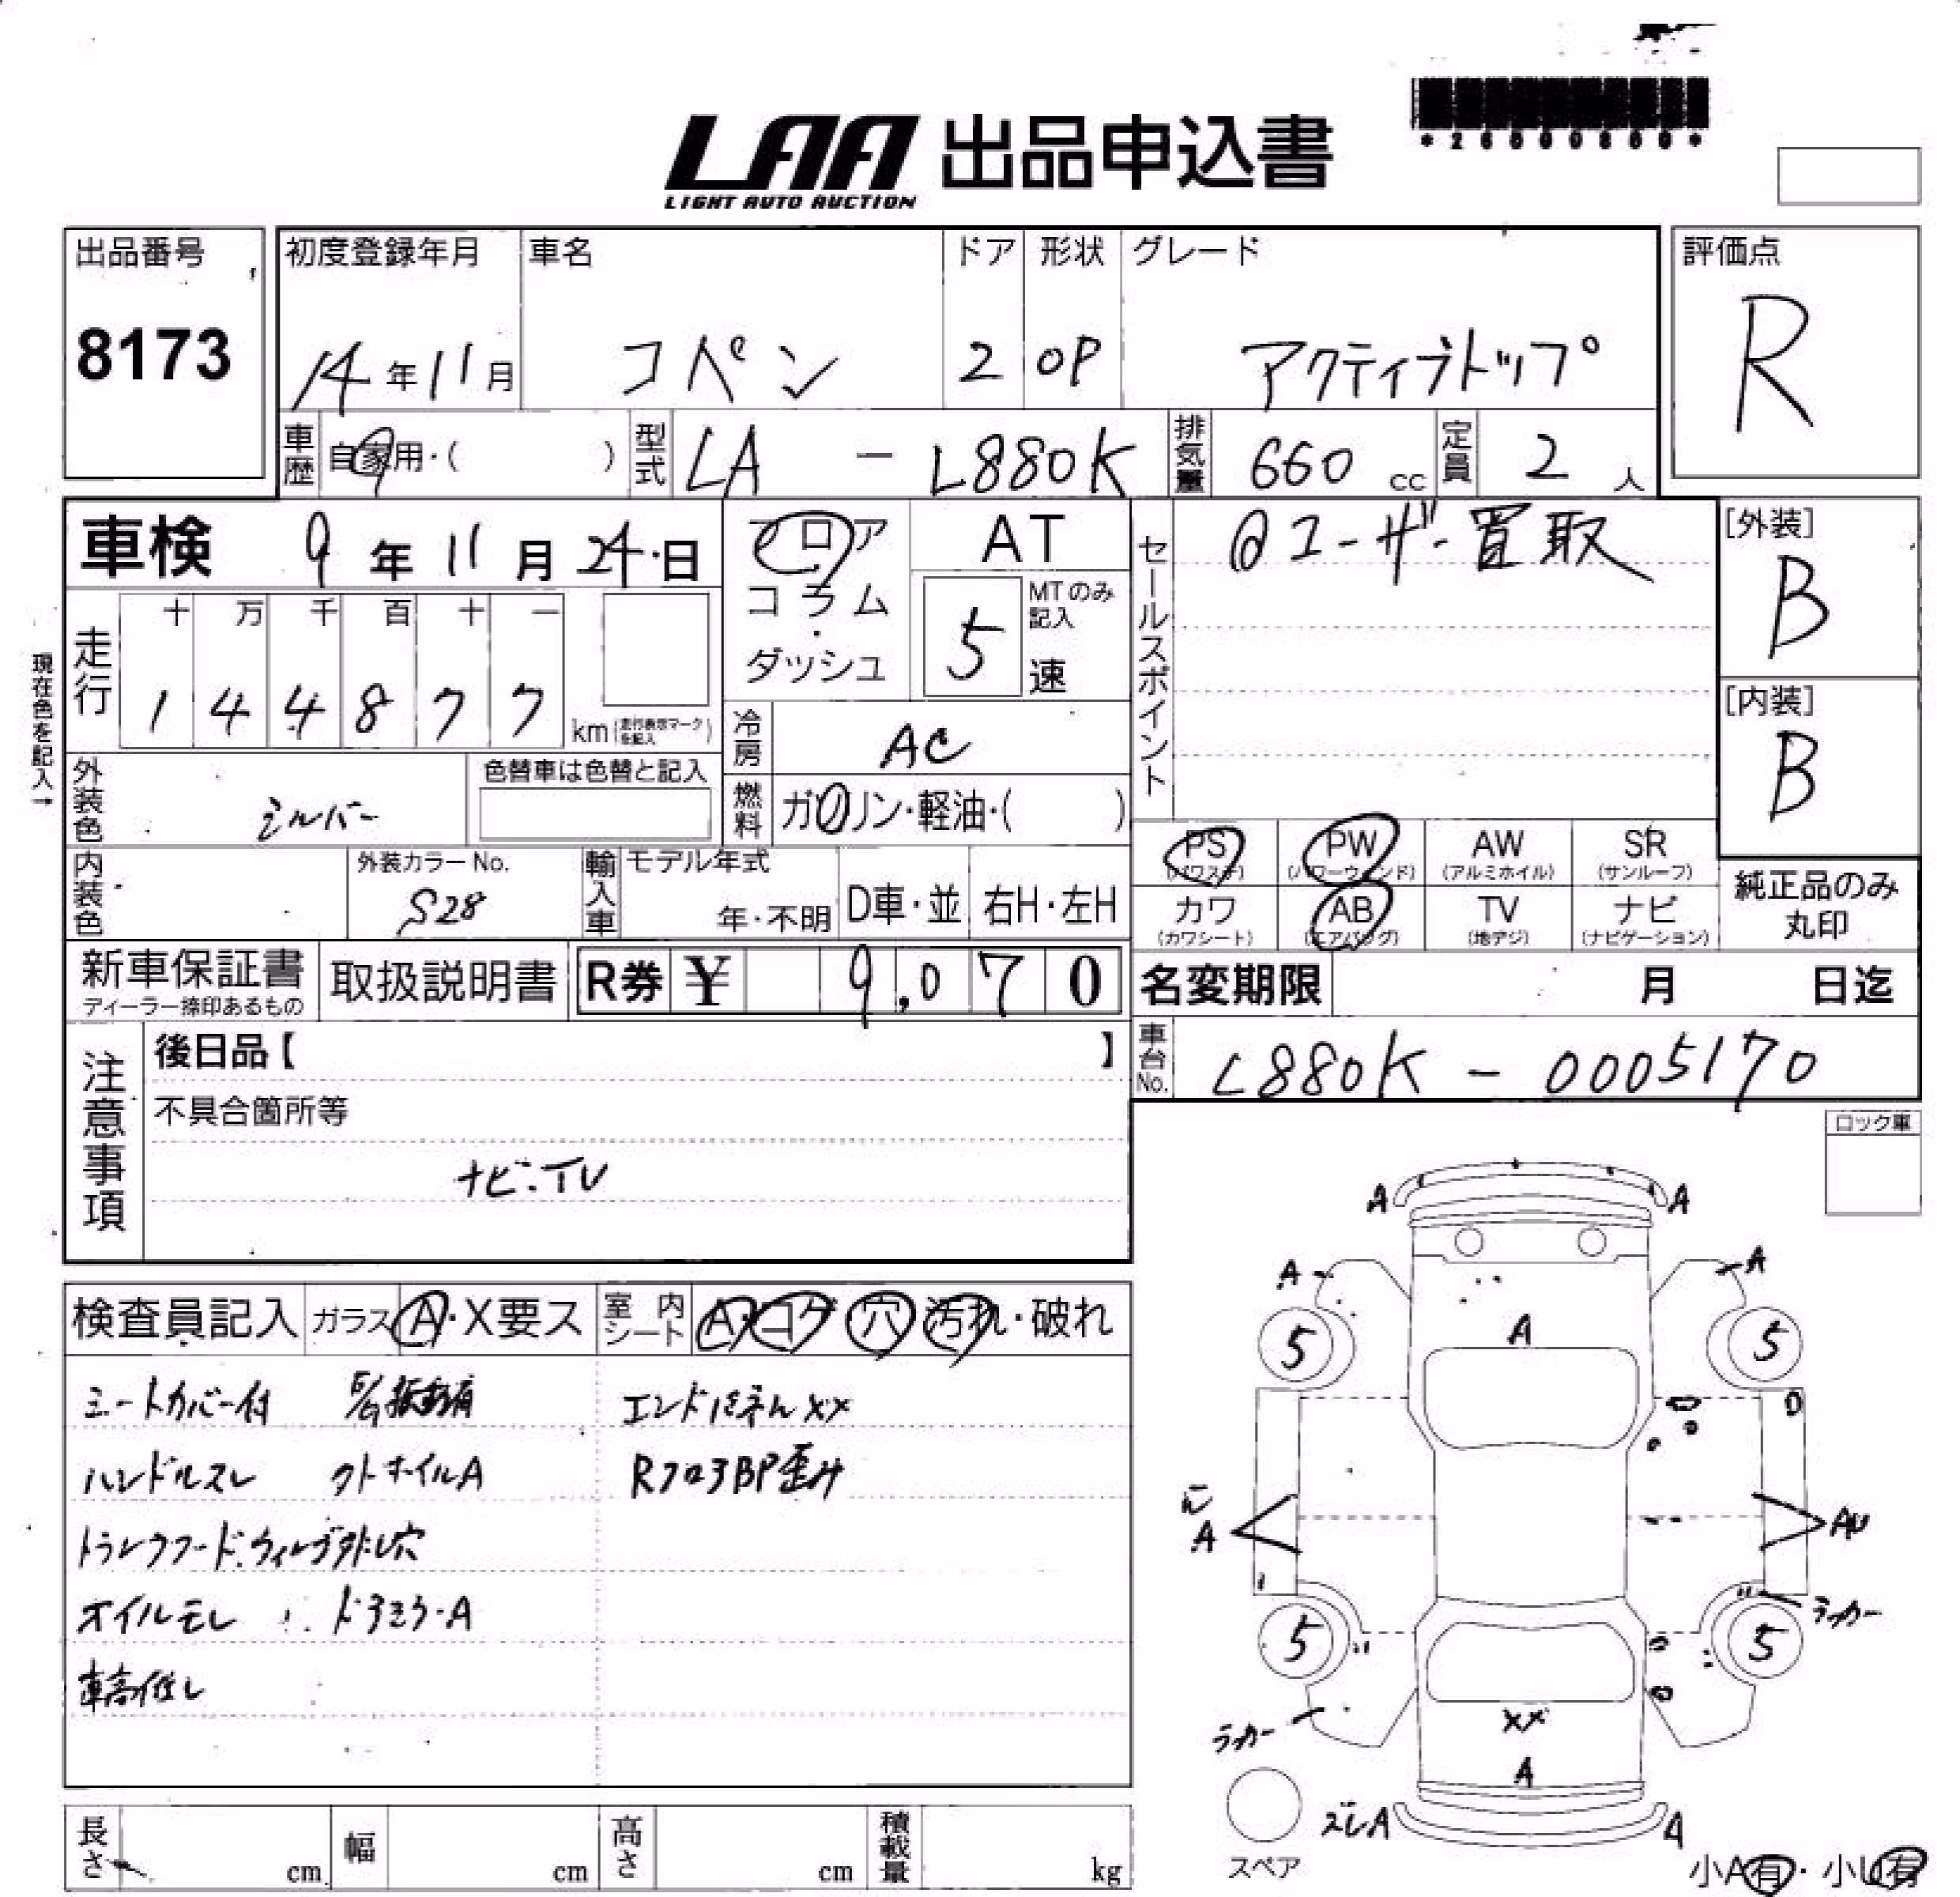 LAA 出品申込書
LIGHT AUTO AUCTION
出品番号
8173
初度登録年月 車名 ドア 形状 グレード
14年11月 コペン 2 OP アクティブトップ
評価点
R
車歴 自家用・( ) 型式 LA - L880K 排気量 660 cc 定員 2 人
車検 9年11月24日
フロア
コラム
・
ダッシュ
AT
5 速
MTのみ記入
セールスポイント
@ユーザー買取
[外装]
B
[内装]
B
現在色を記入→
走行
十 万 千 百 十 一
1 4 4 8 7 7 km
冷房 AC
外装色 シルバー
色替車は色替と記入
燃料 ガソリン・軽油・( )
PS PW AW SR
(パワステ) (パワーウィンド) (アルミホイル) (サンルーフ)
カワ AB TV ナビ
(カワシート) (エアバッグ) (地デジ) (ナビゲーション)
純正品のみ
丸印
内装色
外装カラーNo.
S28
輸入車 モデル年式
年・不明 D車・並 右H・左H
新車保証書
ディーラー捺印あるもの
取扱説明書
R券 ¥ 9,070
名変期限 月 日迄
車台No. L880K - 0005170
注意事項
後日品【 】
不具合箇所等
ナビ・TV
ロック車
検査員記入 ガラス A・X要ス 室内シート A・コゲ 穴 汚れ・破れ
シートカバー付
エンドパネルXX
ハンドルスレ アルミホイルA
RフロアBP歪み
トランクフード.ウィング外し穴
オイルモレ ドアミラーA
車高低し
A A
A A
A
5 5
A
AU
ラッカー
5 5
ラッカー
XX
A
ズレA A
スペア
小A有・小U有
長さ cm 幅 cm 高さ cm 積載量 kg